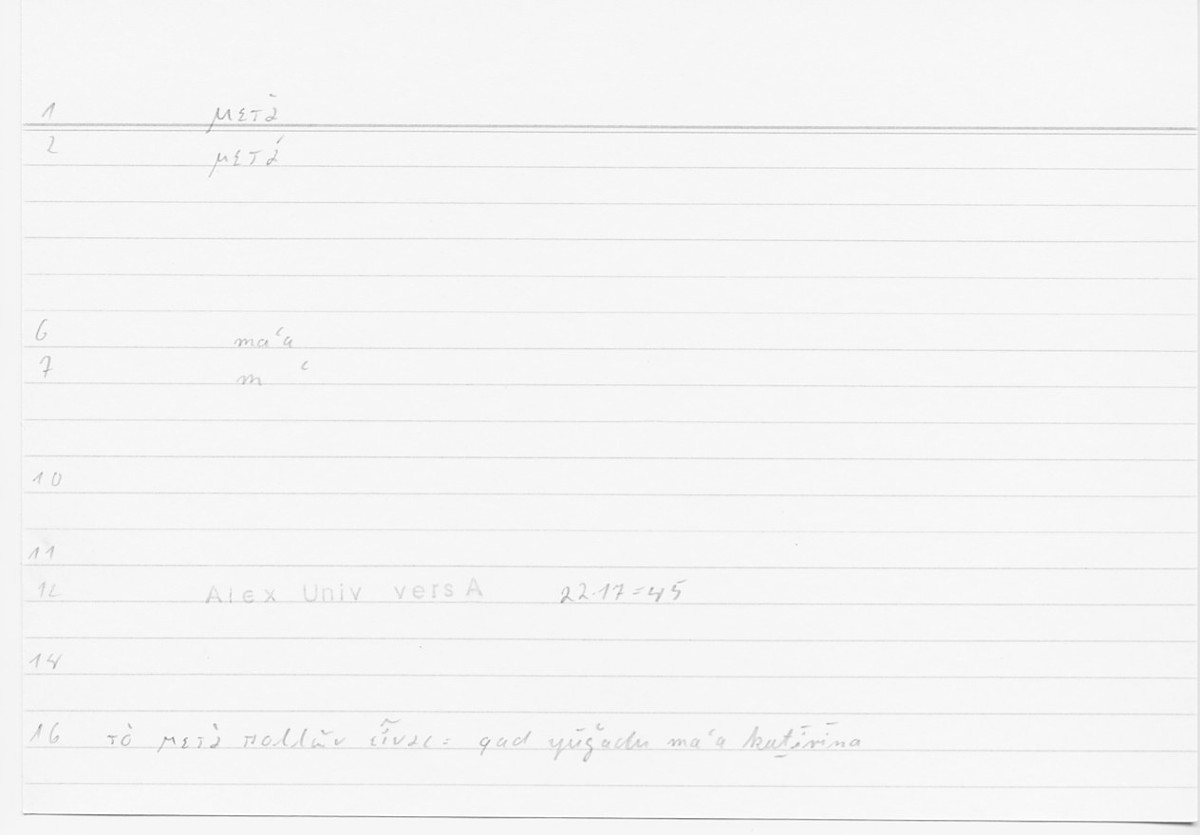 1 μετὰ
2 μετά
6 maʿa
7 m ʿ
10
11
12 Alex Univ vers A 22.17=45
14
16 τὸ μετὰ πολλῶν εἶναι: qad yūǧadu maʿa kaṯīrīna